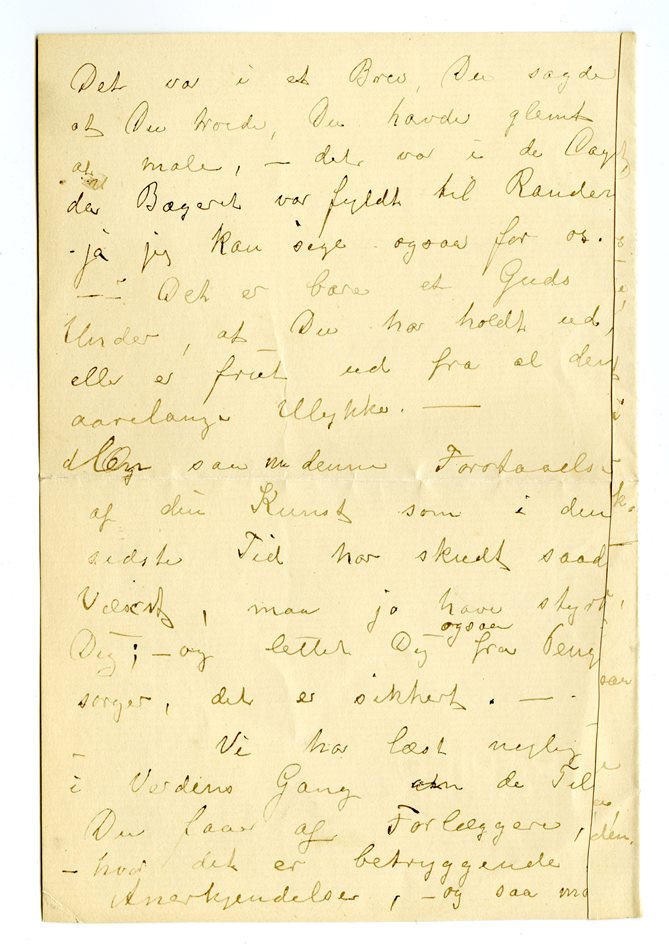 Det var i et Brev, Du sagde
at Du troede, Du havde glemt
at male, – det var i de Dage,
da Bægeret var fyldt til Randen
– ja jeg kan sige ogsaa for os.
—— Det er bare et Guds
Under, at Du har holdt ud,
eller er friet ud fra al den
aarelange Ulykke. —
Og saa nu denne Forstaaelse
af din Kunst som i den
sidste Tid har skudt saad
Væxt, maa jo have styrk
Dig; – og lettet Dig ogsaa fra Peng
sorger, det er sikkert. —
– Vi har læst nylig
i Verdens Gang de Til
Du faar af Forlæggere,
– hvor det er betryggende
Anerkjendelser, – og saa ma